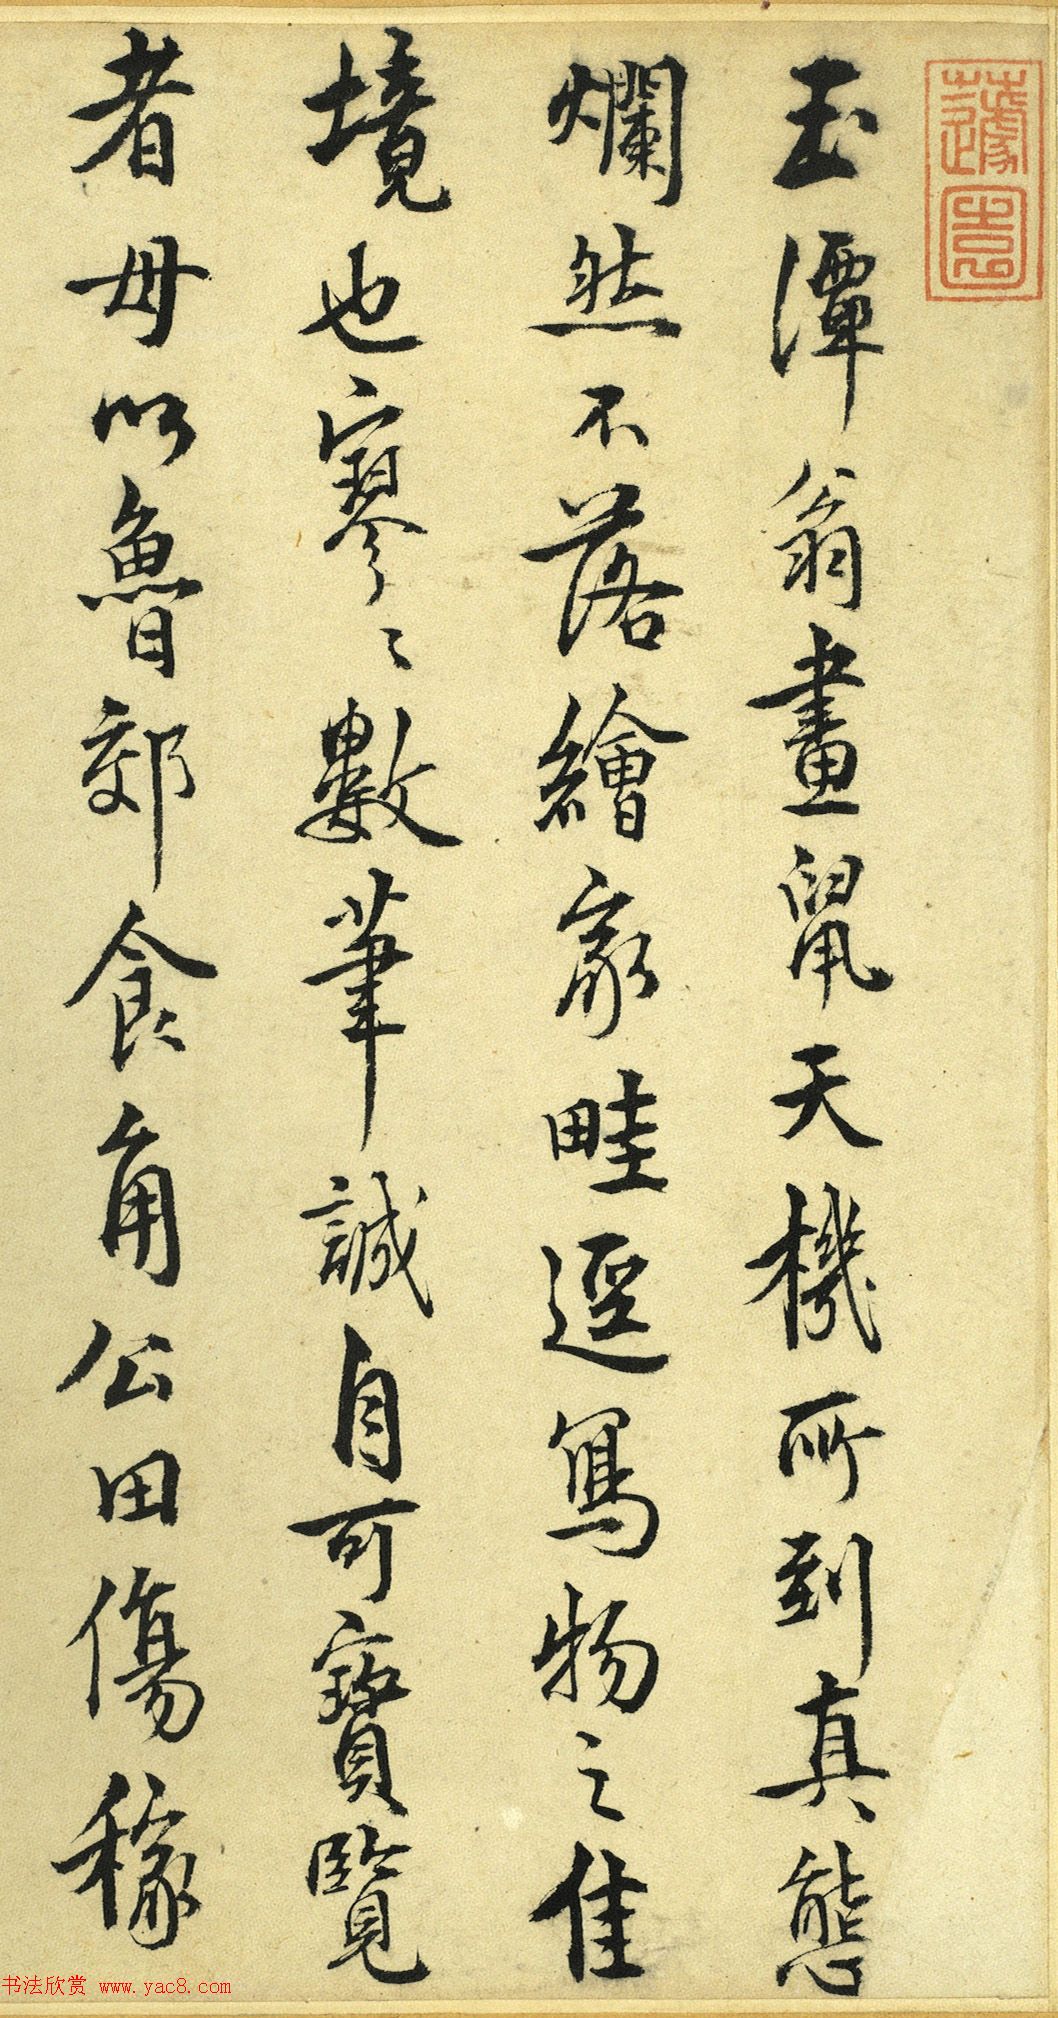 玉潭翁畫鼠天機所到真態
爛然不落繪家畦逕寫物之佳
境也寥〻數筆誠自可寶覽
者毋以魯郊食角公田傷稼
书法欣赏 www.yac8.com